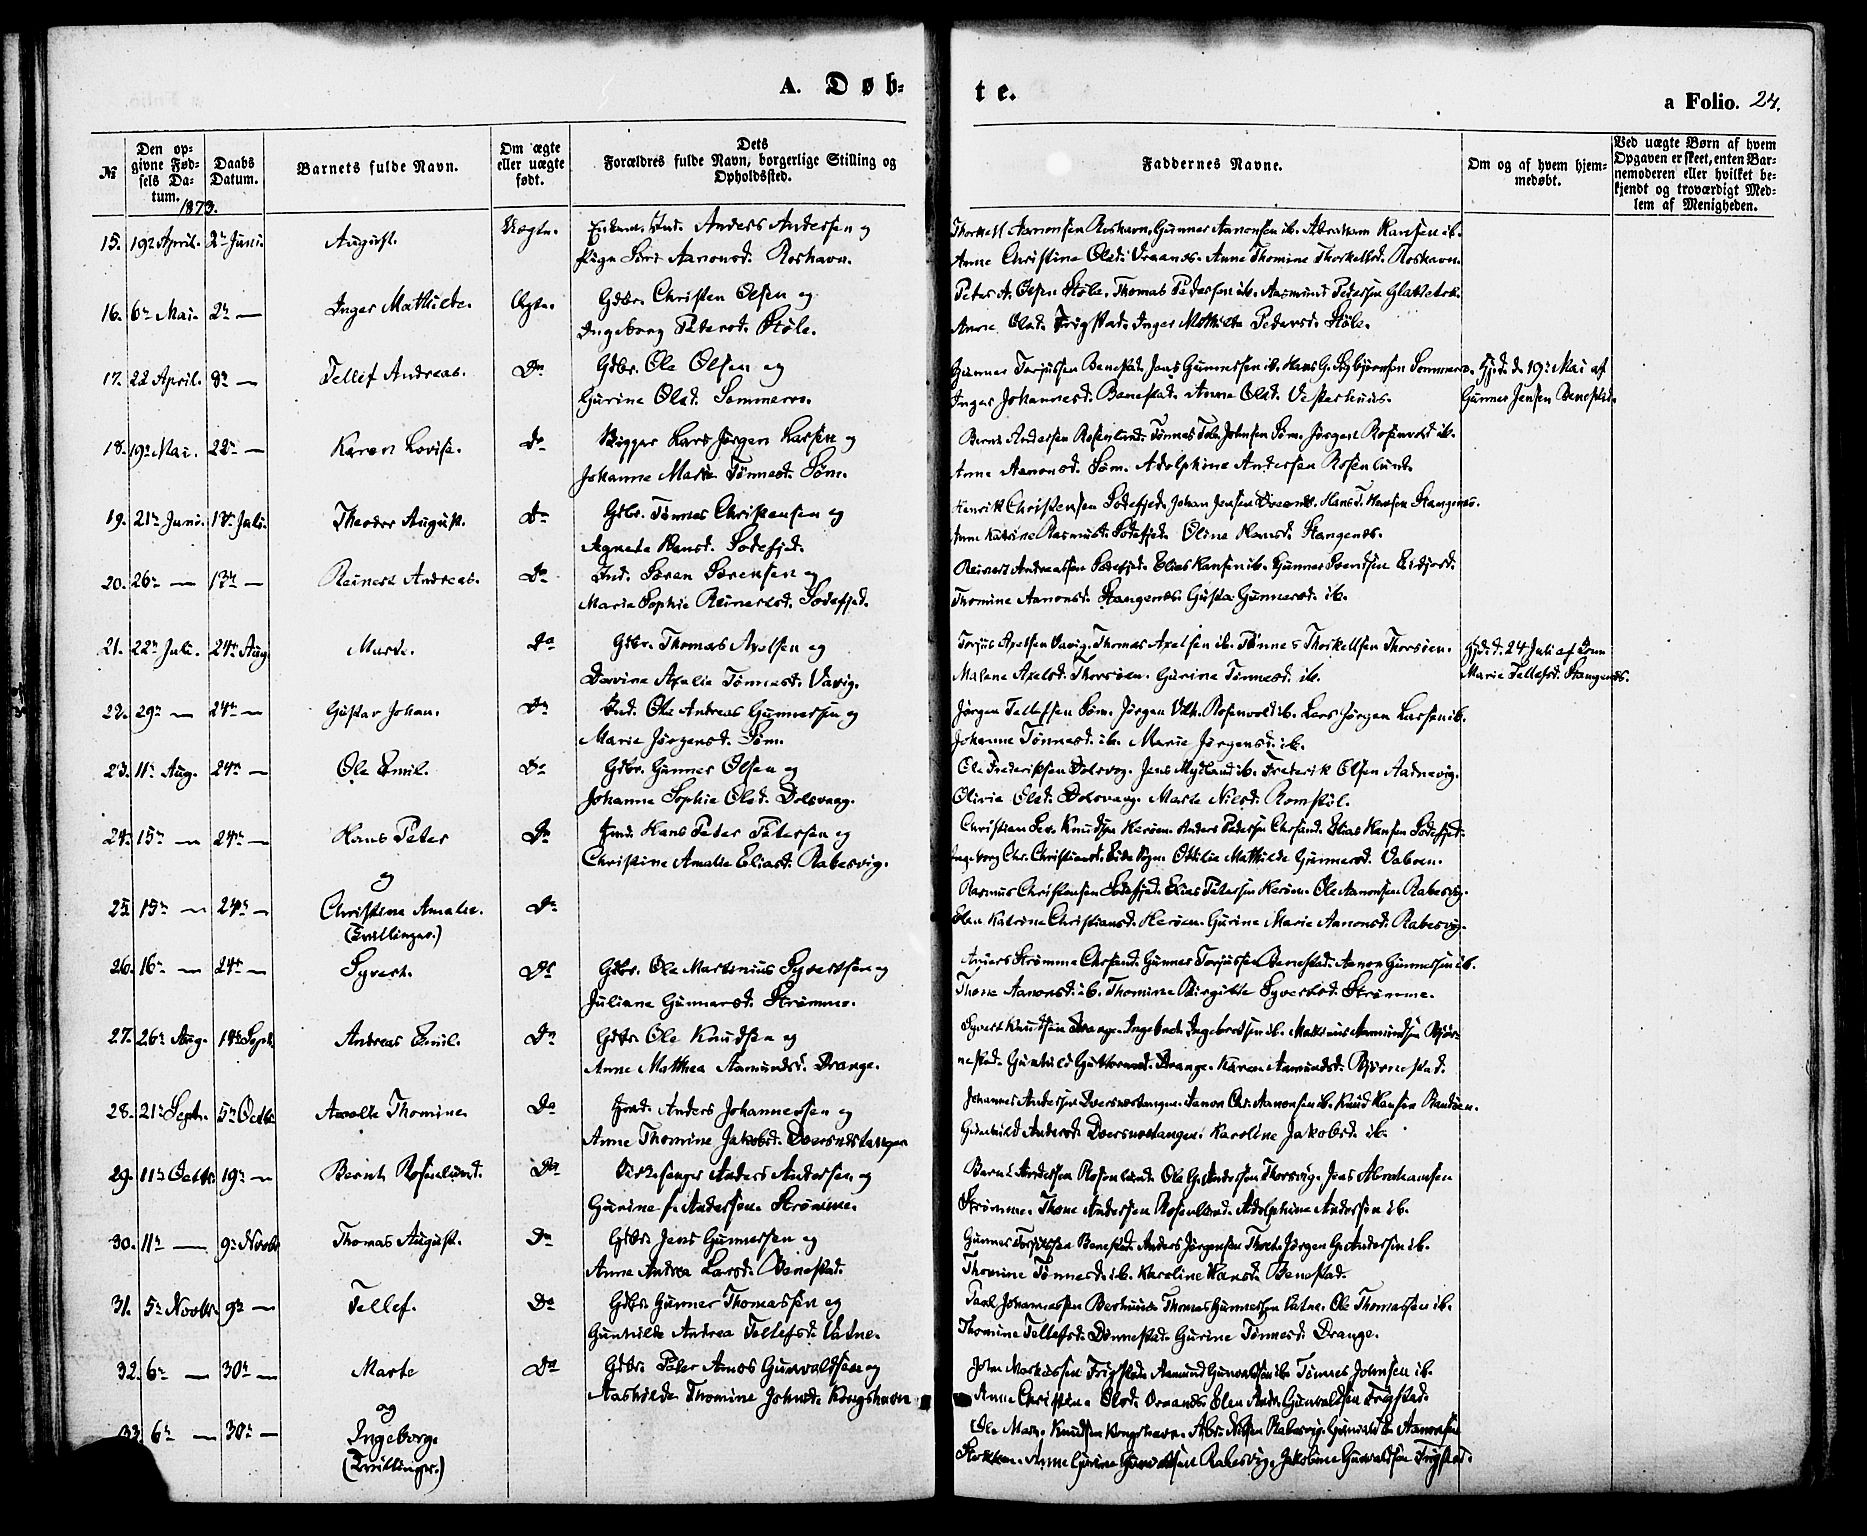 A. Døb-
te.
a Folio. 24.
№
Den op-
givne Fød-
sels Da-
tum.
1873.
Daabs
Datum.
Barnets fulde Navn.
Om ægte
eller uægte
født.
Dets
Forældres fulde Navn, borgerlige Stilling og
Opholdssted.
Faddernes Navne.
Om og af hvem hjem-
medøbt.
Ved uægte Børn af hvem
Opgaven er skeet, enten Bar-
nemoderen eller hvilket be-
kjendt og troværdigt Med-
lem af Menigheden.
15. 19de April. 2den Juni. August. Uægte. Ind. Anders Andersen og
Pige Aanonsd. Roshavn.
Thorkell Aanonsen Roshavn. Gunner Aanonsen ib. Abraham Hansen ib.
Anne Christine Olsd. Anne Thomine Thorkellsd. Roshavn.
16. 6te Mai. 2den — Inger Mathilde. Ægte. Gdbr. Christen Olsen og
Ingeborg Pedersd. Støle.
Peter A. Olsen Støle. Thomas Pedersen ib. Aasmund Pedersen
Anne Olsd. Frigstad. Inger Mathilde Pedersd. Støle.
17. 22 April. 8de — Tellef Andreas. Do Gdbr. Ole Olsen og
Gurine Olsd. Sommero.
Gunner Torjussen Benestad. Jens Gunnersen ib. Hans G. Sommero.
Inger Johannesd. Benestad. Anne Olsd. Vesterhuus.
Hjd. d. 19de Mai af
Gunner Jensen Benestad.
18. 19de Mai. 22de — Karen Lovise. Do Skipper Lars Jørgen Larsen og
Johanne Marie Tønnesd. Søm.
Bernt Andersen Rosenlund. Tønnes Johnsen Søm. Jørgen Rosenvold ib.
Anne Aanonsd. Søm. Adolphine Andersen Rosenlund.
19. 21de Juni. 13de Juli. Theodor August. Do Gdbr. Tønnes Christensen og
Agnete Hansd. Sodefjed.
Henrik Christensen Sodefjed. Johan Jensen Hans T. Hansen Stangenes.
Anne Katrine Rasmusd. Sodefjed. Oline Hansd. Stangenes.
20. 26de — 13de — Reinert Andreas. Do Ind. Søren Sørensen og
Marie Sophie Reinertsd. Sodefjed.
Reinert Andreassen Sodefjed. Elias Hansen ib. Gunner Svendsen
Thomine Aanonsd. Stangenes. Gusta Gunnersd. ib.
21. 22de Juli. 24de Aug. Marte. Do Gdbr. Thomas Axelsen og
Axelie Tønnesd. Vavig.
Torjus Axelsen Vavig. Thomas Axelsen ib. Tønnes Thorkellsen Thorsøen.
Malene Axelsd. Thorsøen. Gurine Tønnesd. ib.
Hjd. d. 24 Juli af
Marie Tellefsd. Stangenes.
22. 29de — 24de — Gustav Johan. Do Ind. Ole Andreas Gunnersen og
Marie Jørgensd. Søm.
Jørgen Tellefsen Søm. Jørgen Vilh. Rosenvold ib. Lars Jørgen Larsen ib.
Johanne Tønnesd. ib. Marie Jørgensd. ib.
23. 11te Aug. 24de — Ole Emil. Do Gdbr. Gunner Olsen og
Johanne Sophie Olsd. Dolsvaag.
Ole Frederiksen Dolsvog. Jens Mydland ib. Frederik Olsen Aadnevig.
Olivia Olsd. Dolsvaag. Marte Nilsd. Romstøl.
24. 15de — 24de — Hans Peter Do Hans Peter Petersen og
Christine Amalie Eliasd. Rabesvig.
Christian Knudsen Herøen. Anders Pedersen Chrsand. Elias Hansen Sodefjed.
Ingeborg Chr. Christiansd. Ottilie Mathilde Gunnersd. Vaboen.
og
25. 15de — 24de — Christine Amalie. Do
(Tvillinger.)
Rasmus Christensen Sodefjed. Elias Petersen Herøen. Ole Aanonsen Rabesvig.
Elen Katrine Christiansd. Herøen. Gurine Marie Aanonsd. Rabesvig.
26. 16de — 24de — Syvert. Do Gdbr. Ole Martinius Syvertsen og
Juliane Gunnarsd. Strømme.
Anders Strømme Chrsand. Gunner Torjussen Benestad. Aanon Gunnersen ib.
Thone Aanonsd. ib. Thomine Birgitte Syvertsd. Strømme.
27. 26de Aug. 14de Sept. Andreas Emil. Do Gdbr. Ole Knudsen og
Anne Mathea Aamundsd. Drange.
Syvert Knudsen Drange. Ingebret Ingebretsen ib. Aamundsen Bjør-
nestad. Gunhild Guttormsd. Drange. Karen Aamundsd. Bjørnestad.
28. 21de Septr. 5te Octbr. Axelle Thomine. Do Anders Johannessen og
Anne Thomine Jakobsd. Dversnestangen
Johannes Andersen Dversnestangen. Aanon Chr. Aanonsen ib. Knud Hansen Randøen.
Gunhild Andersd. Dversnestangen. Karoline Jakobsd. ib.
29. 11te Octbr. 19de — Bernt Rosenlund. Do Kirkesanger Anders Andersen og
Gurine f. Andersen. Strømme.
Bernt Andersen Rosenlund. Ole G. Andersen Thorsvig. Jens Abrahamsen
Strømme. Thone Andersen Rosenlund. Adolphine Andersen ib.
30. 11te — 9de Novbr Thomas August. Do Gdbr. Jens Gunnersen og
Anne Andrea Larsd. Benestad.
Gunner Torjussen Benestad. Anders Jørgensen Jørgen G. Andersen ib.
Thomine Tønnesd. ib. Karoline Hansd. Benestad.
31. 5te Novbr. 9de — Tellef. Do Gdbr. Gunner Thomassen og
Gunhilde Andrea Tellefsd. Vatne.
Johannessen Thomas Gunnersen Vatne. Ole Thomassen ib.
Thomine Tellefsd. Dønnestad. Gurine Tønnesd. Drange.
32. 6te — 30de — Marte Do Gdbr. Peter Amos Gunvaldsen og
Aashilde Thomine Johnsd. Kongshavn
John Markussen Frigstad. Aamund Gunvaldsen ib. Tønnes Johnsen ib.
Anne Christine Olsd. Elen Andr. Gunvaldsen Frigstad.
og
33. 6te — 30de — Ingeborg.
(Tvillinger.)
Ole Mart. Knudsen Kongshavn. Abr. Nilsen Rabesvig. Gunvald Aanonsen
Stokken. Anne Gurine Gunvaldsen Rabesvig. Jakobine Gunvaldsen Frigstad.